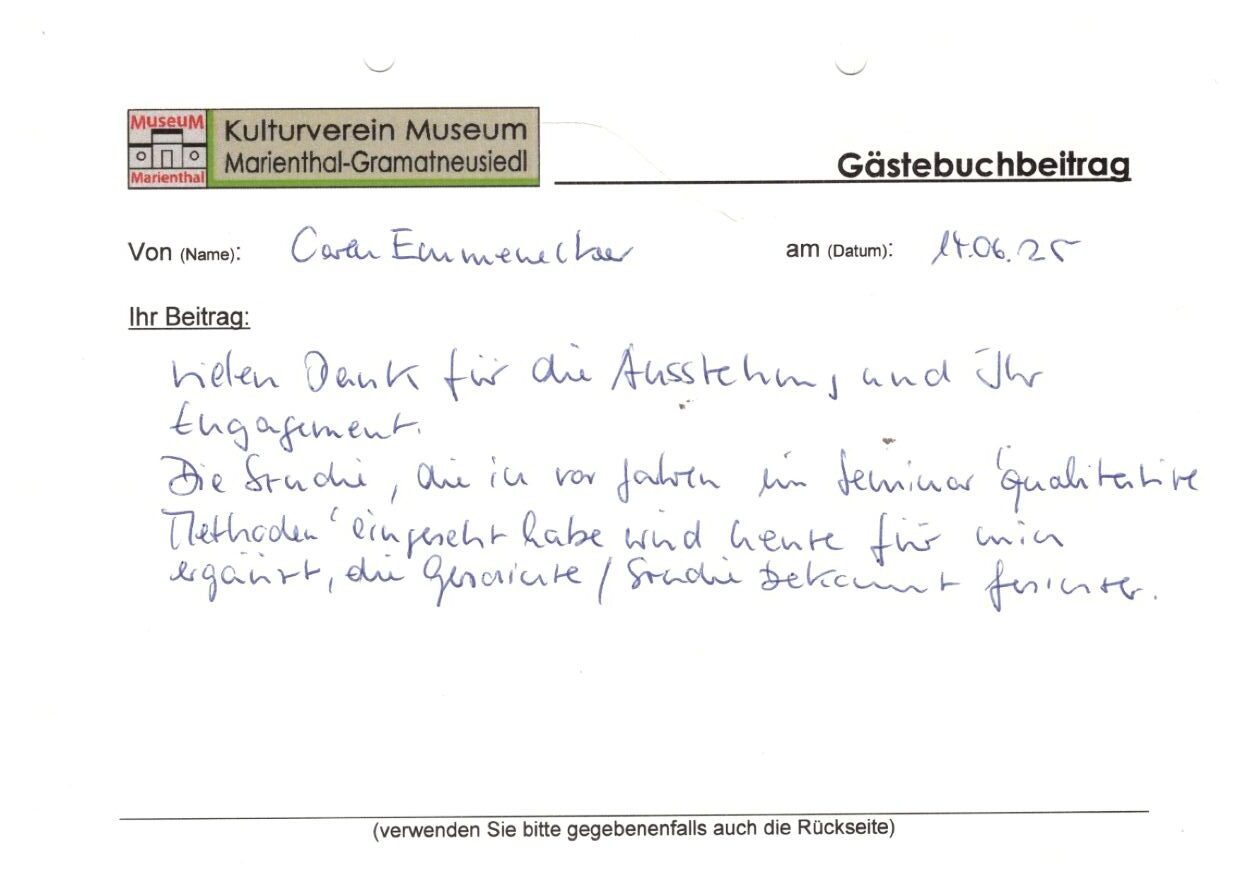 MuseuM
Marienthal
Kulturverein Museum
Marienthal-Gramatneusiedl
Gästebuchbeitrag
Von (Name): Caren am (Datum): 14.06.25
Ihr Beitrag:
Vielen Dank für die Ausstellung und Ihr
Engagement.
Die Studie, die ich vor Jahren im Seminar 'Qualitative
Methoden' eingesetzt habe wird heute für mich
ergänzt, die Geschichte / Studie bekommt Gesichter.
(verwenden Sie bitte gegebenenfalls auch die Rückseite)